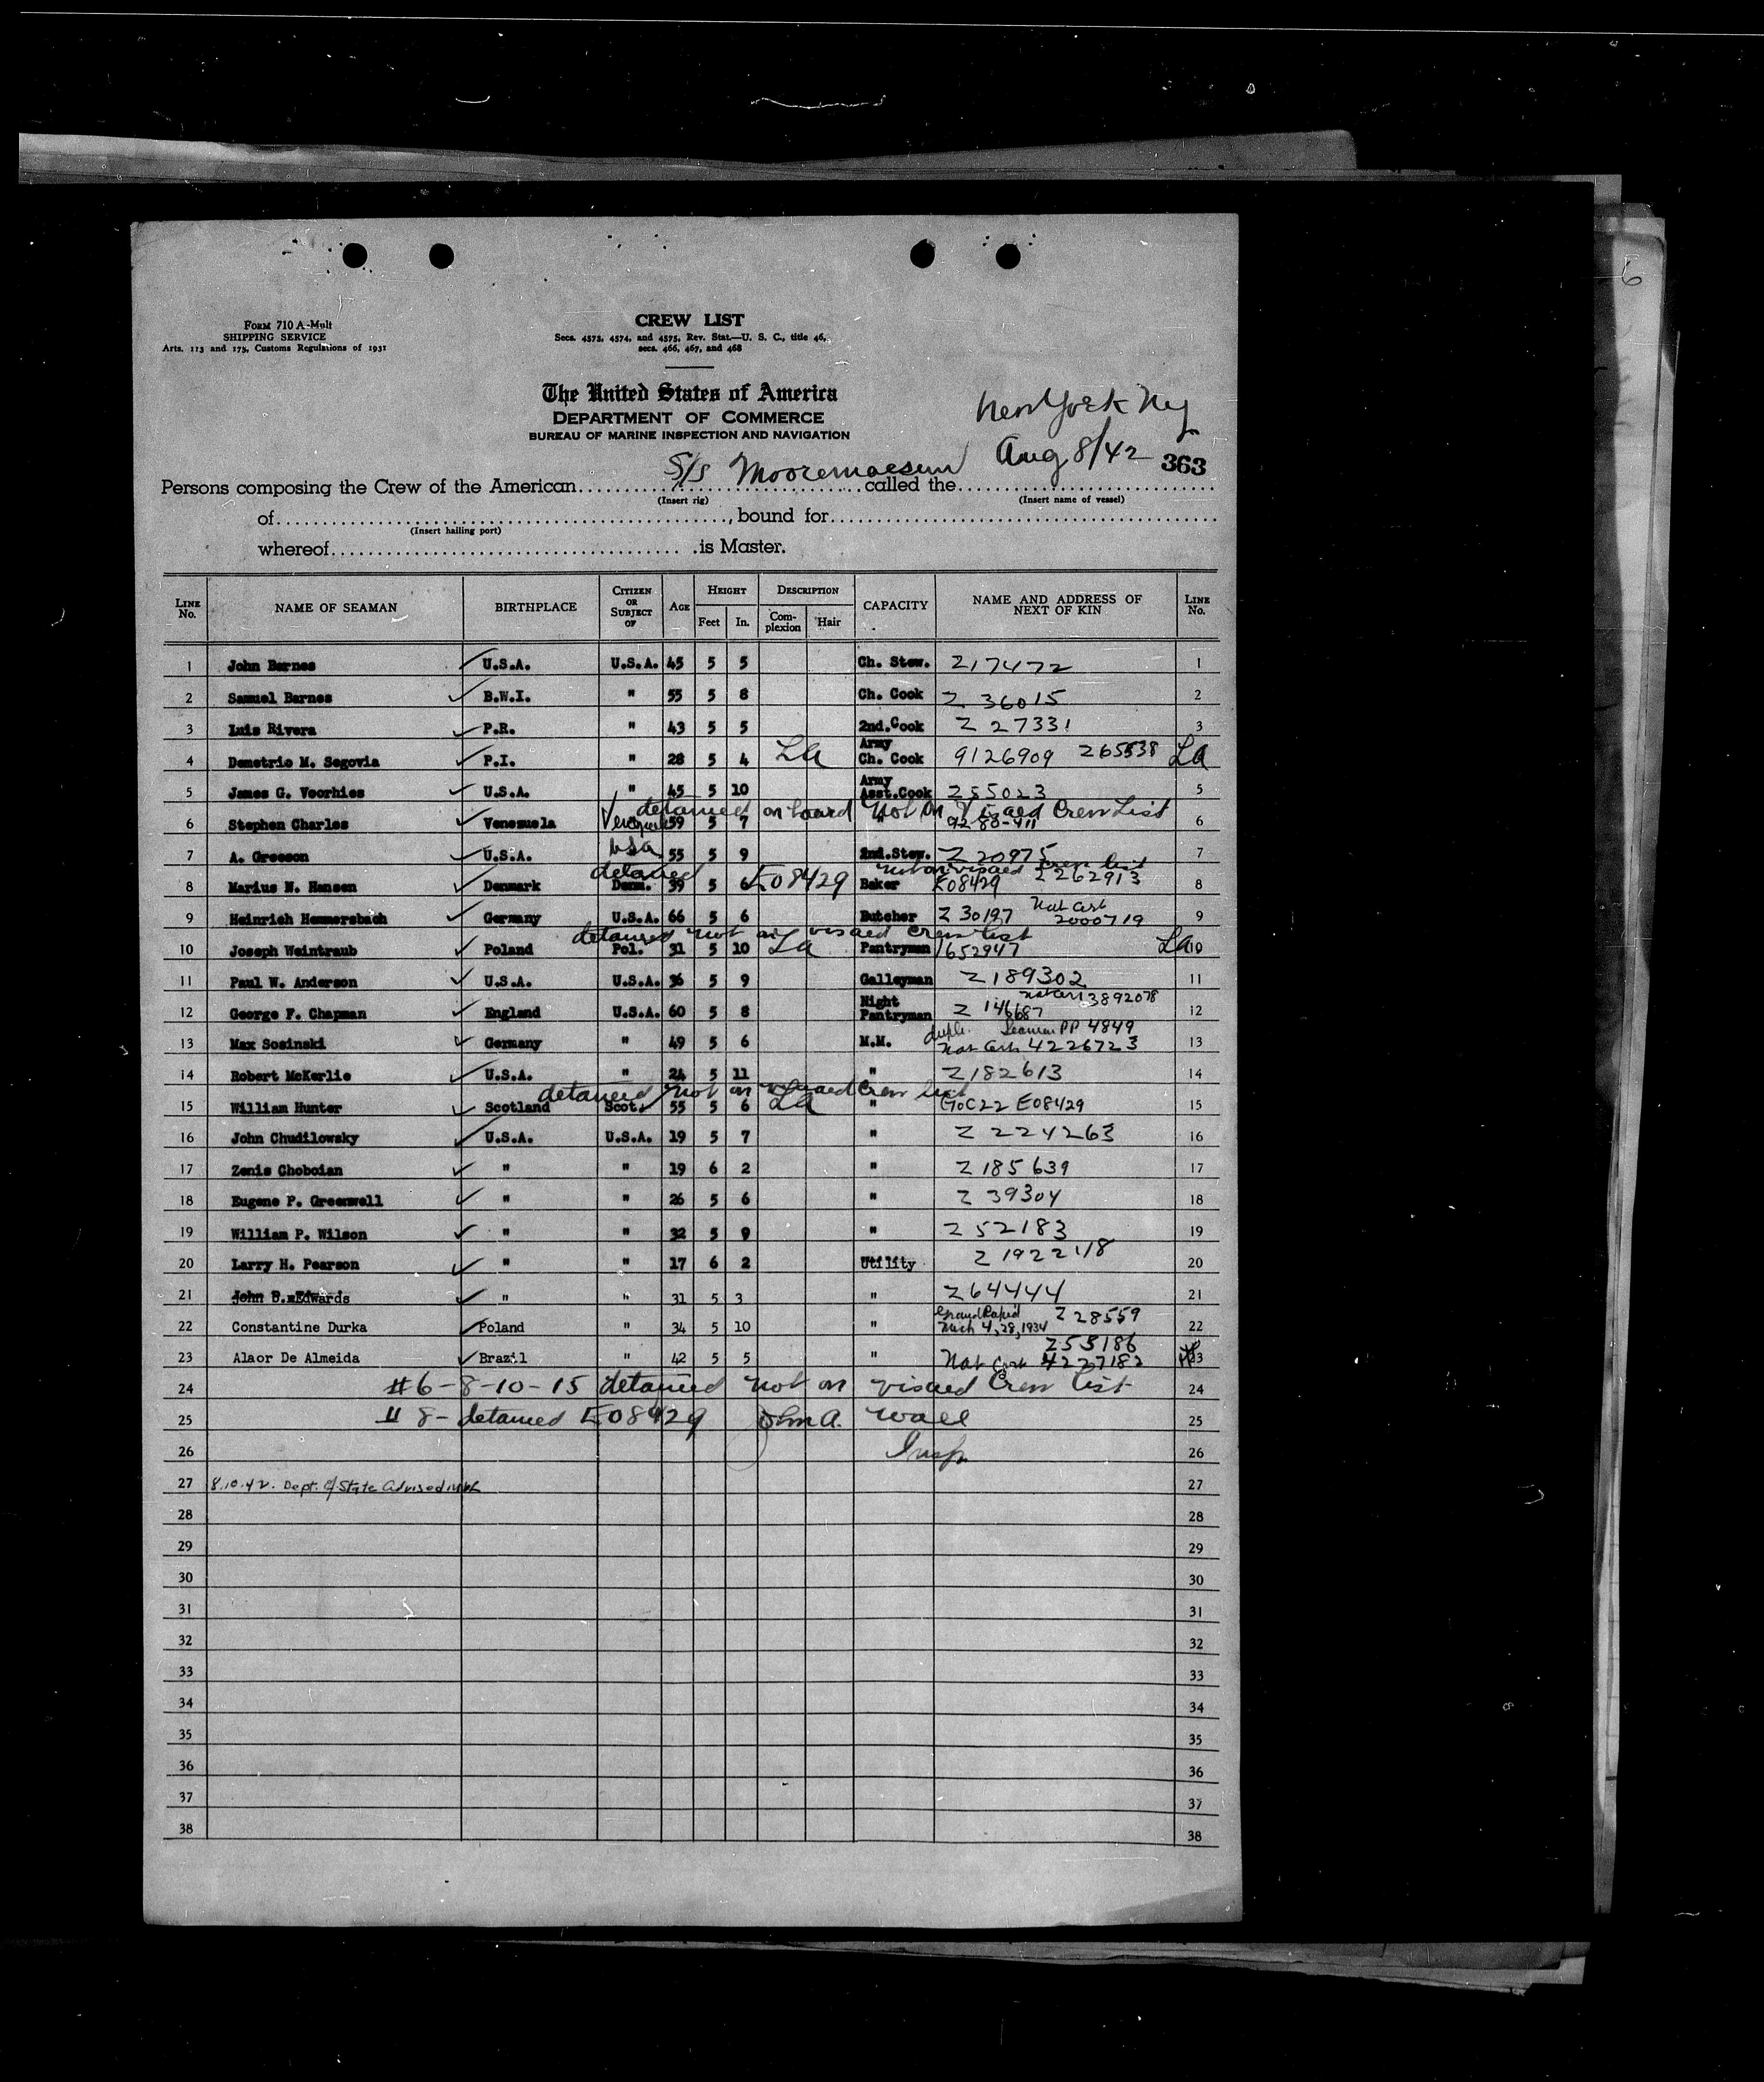 6
Form 710 A-Mult
SHIPPING SERVICE
Arts. 113 and 175, Customs Regulations of 1931
CREW LIST
Secs. 4573, 4574, and 4575, Rev. Stat.—U. S. C., title 46,
secs. 466, 467, and 468
The United States of America
DEPARTMENT OF COMMERCE
BUREAU OF MARINE INSPECTION AND NAVIGATION
New York NY
Aug 8/42 363
Persons composing the Crew of the American S/S called the
(Insert rig) (Insert name of vessel)
of, bound for
(Insert hailing port)
whereof is Master.
LINE No. NAME OF SEAMAN BIRTHPLACE CITIZEN OR SUBJECT OF AGE HEIGHT Feet In. DESCRIPTION Complexion Hair CAPACITY NAME AND ADDRESS OF NEXT OF KIN LINE No.
1 John Barnes U.S.A. U.S.A. 45 5 5 Ch. Stew. Z17472 1
2 Samuel Barnes B.W.I. " 55 5 8 Ch. Cook Z 36015 2
3 Luis Rivera P.R. " 43 5 5 2nd.Cook Z 27331 3
4 Demetrio M. Segovia P.I. " 28 5 4 La Army Ch. Cook 9126909 Z65538 La 4
5 James G. Voorhies U.S.A. " 45 5 10 Army Asst.Cook Z55023 5
detained on board not on visaed Crew List
6 Stephen Charles Venezuela 59 5 7 " 9280-411 6
7 A. Greeson U.S.A. USA 55 5 9 2nd.Stew. Z 20975 7
detained not on visaed crew list
8 Marius N. Hansen Denmark Denm. 39 5 6 E08429 Baker E08429 Z262913 8
9 Heinrich Hemmersbach Germany U.S.A. 66 5 6 Butcher Z 30197 Nat Cert 2000719 9
detained not on visaed crew list
10 Joseph Weintraub Poland Pol. 31 5 10 La Pantryman 1652947 La 10
11 Paul W. Anderson U.S.A. U.S.A. 36 5 9 Galleyman Z189302 11
12 George F. Chapman England U.S.A. 60 5 8 Night Pantryman Z 146687 Nat Cert 3892078 12
13 Max Sosinski Germany " 49 5 6 M.M. dupl. Seaman PP 4849 Nat Cert 4226723 13
14 Robert McKerlie U.S.A. " 24 5 11 " Z182613 14
detained not on visaed Crew list
15 William Hunter Scotland Scot. 55 5 6 La " E08429 15
16 John Chudilowsky U.S.A. U.S.A. 19 5 7 " Z 224263 16
17 Zenis Choboian " " 19 6 2 " Z 185639 17
18 Eugene P. Greenwell " " 26 5 6 " Z 39304 18
19 William P. Wilson " " 32 5 9 " Z 52183 19
20 Larry H. Pearson " " 17 6 2 Utility 20
21 John B. Edwards " " 31 5 3 " Z64444 21
22 Constantine Durka Poland " 34 5 10 " Grand Rapid Mich 4,28,1934 Z 28559 22
23 Alaor De Almeida Brazil " 42 5 5 " Z55186 Nat Cert 4227182 23
24 #6-8-10-15 detained not on visaed Crew list 24
25 # 8- detained E08429 John A. Wall 25
26 Insp. 26
27 8.10.42. Dept. of State Advised 27
28 28
29 29
30 30
31 31
32 32
33 33
34 34
35 35
36 36
37 37
38 38